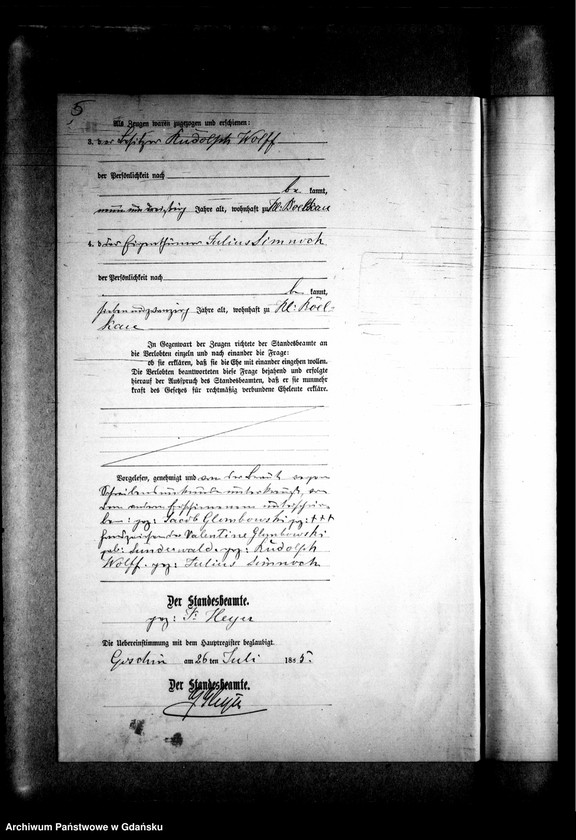 5
Als Zeugen waren zugezogen und erschienen:
3. der Besitzer Rudolph Wolff
der Persönlichkeit nach
be kannt,
neun und dreißig Jahre alt, wohnhaft zu Kl: Boelkau
4. der Eigenthümer Julius Simnoch
der Persönlichkeit nach
be kannt,
siebenundzwanzig Jahre alt, wohnhaft zu Kl: Böel-
kau
In Gegenwart der Zeugen richtete der Standesbeamte an
die Verlobten einzeln und nach einander die Frage:
ob sie erklären, daß sie die Ehe mit einander eingehen wollen.
Die Verlobten beantworteten diese Frage bejahend und erfolgte
hierauf der Ausspruch des Standesbeamten, daß er sie nunmehr
kraft des Gesetzes für rechtmäßig verbundene Eheleute erkläre.
Vorgelesen, genehmigt und von der Braut wegen
Schreibensunkunde unterkreuzt, von
den andern Erschienenen unterschrie-
ben: gez: Jacob Glembowski gez: +++
Handzeichen der Valentine Glembowski
geb: Sunderwald. gez: Rudolph
Wolff. gez: Julius Simnoch
Der Standesbeamte.
gez: Heyer
Die Uebereinstimmung mit dem Hauptregister beglaubigt.
Goschin am 26 ten Juli 1885.
Der Standesbeamte.
Heyer
Archiwum Państwowe w Gdańsku